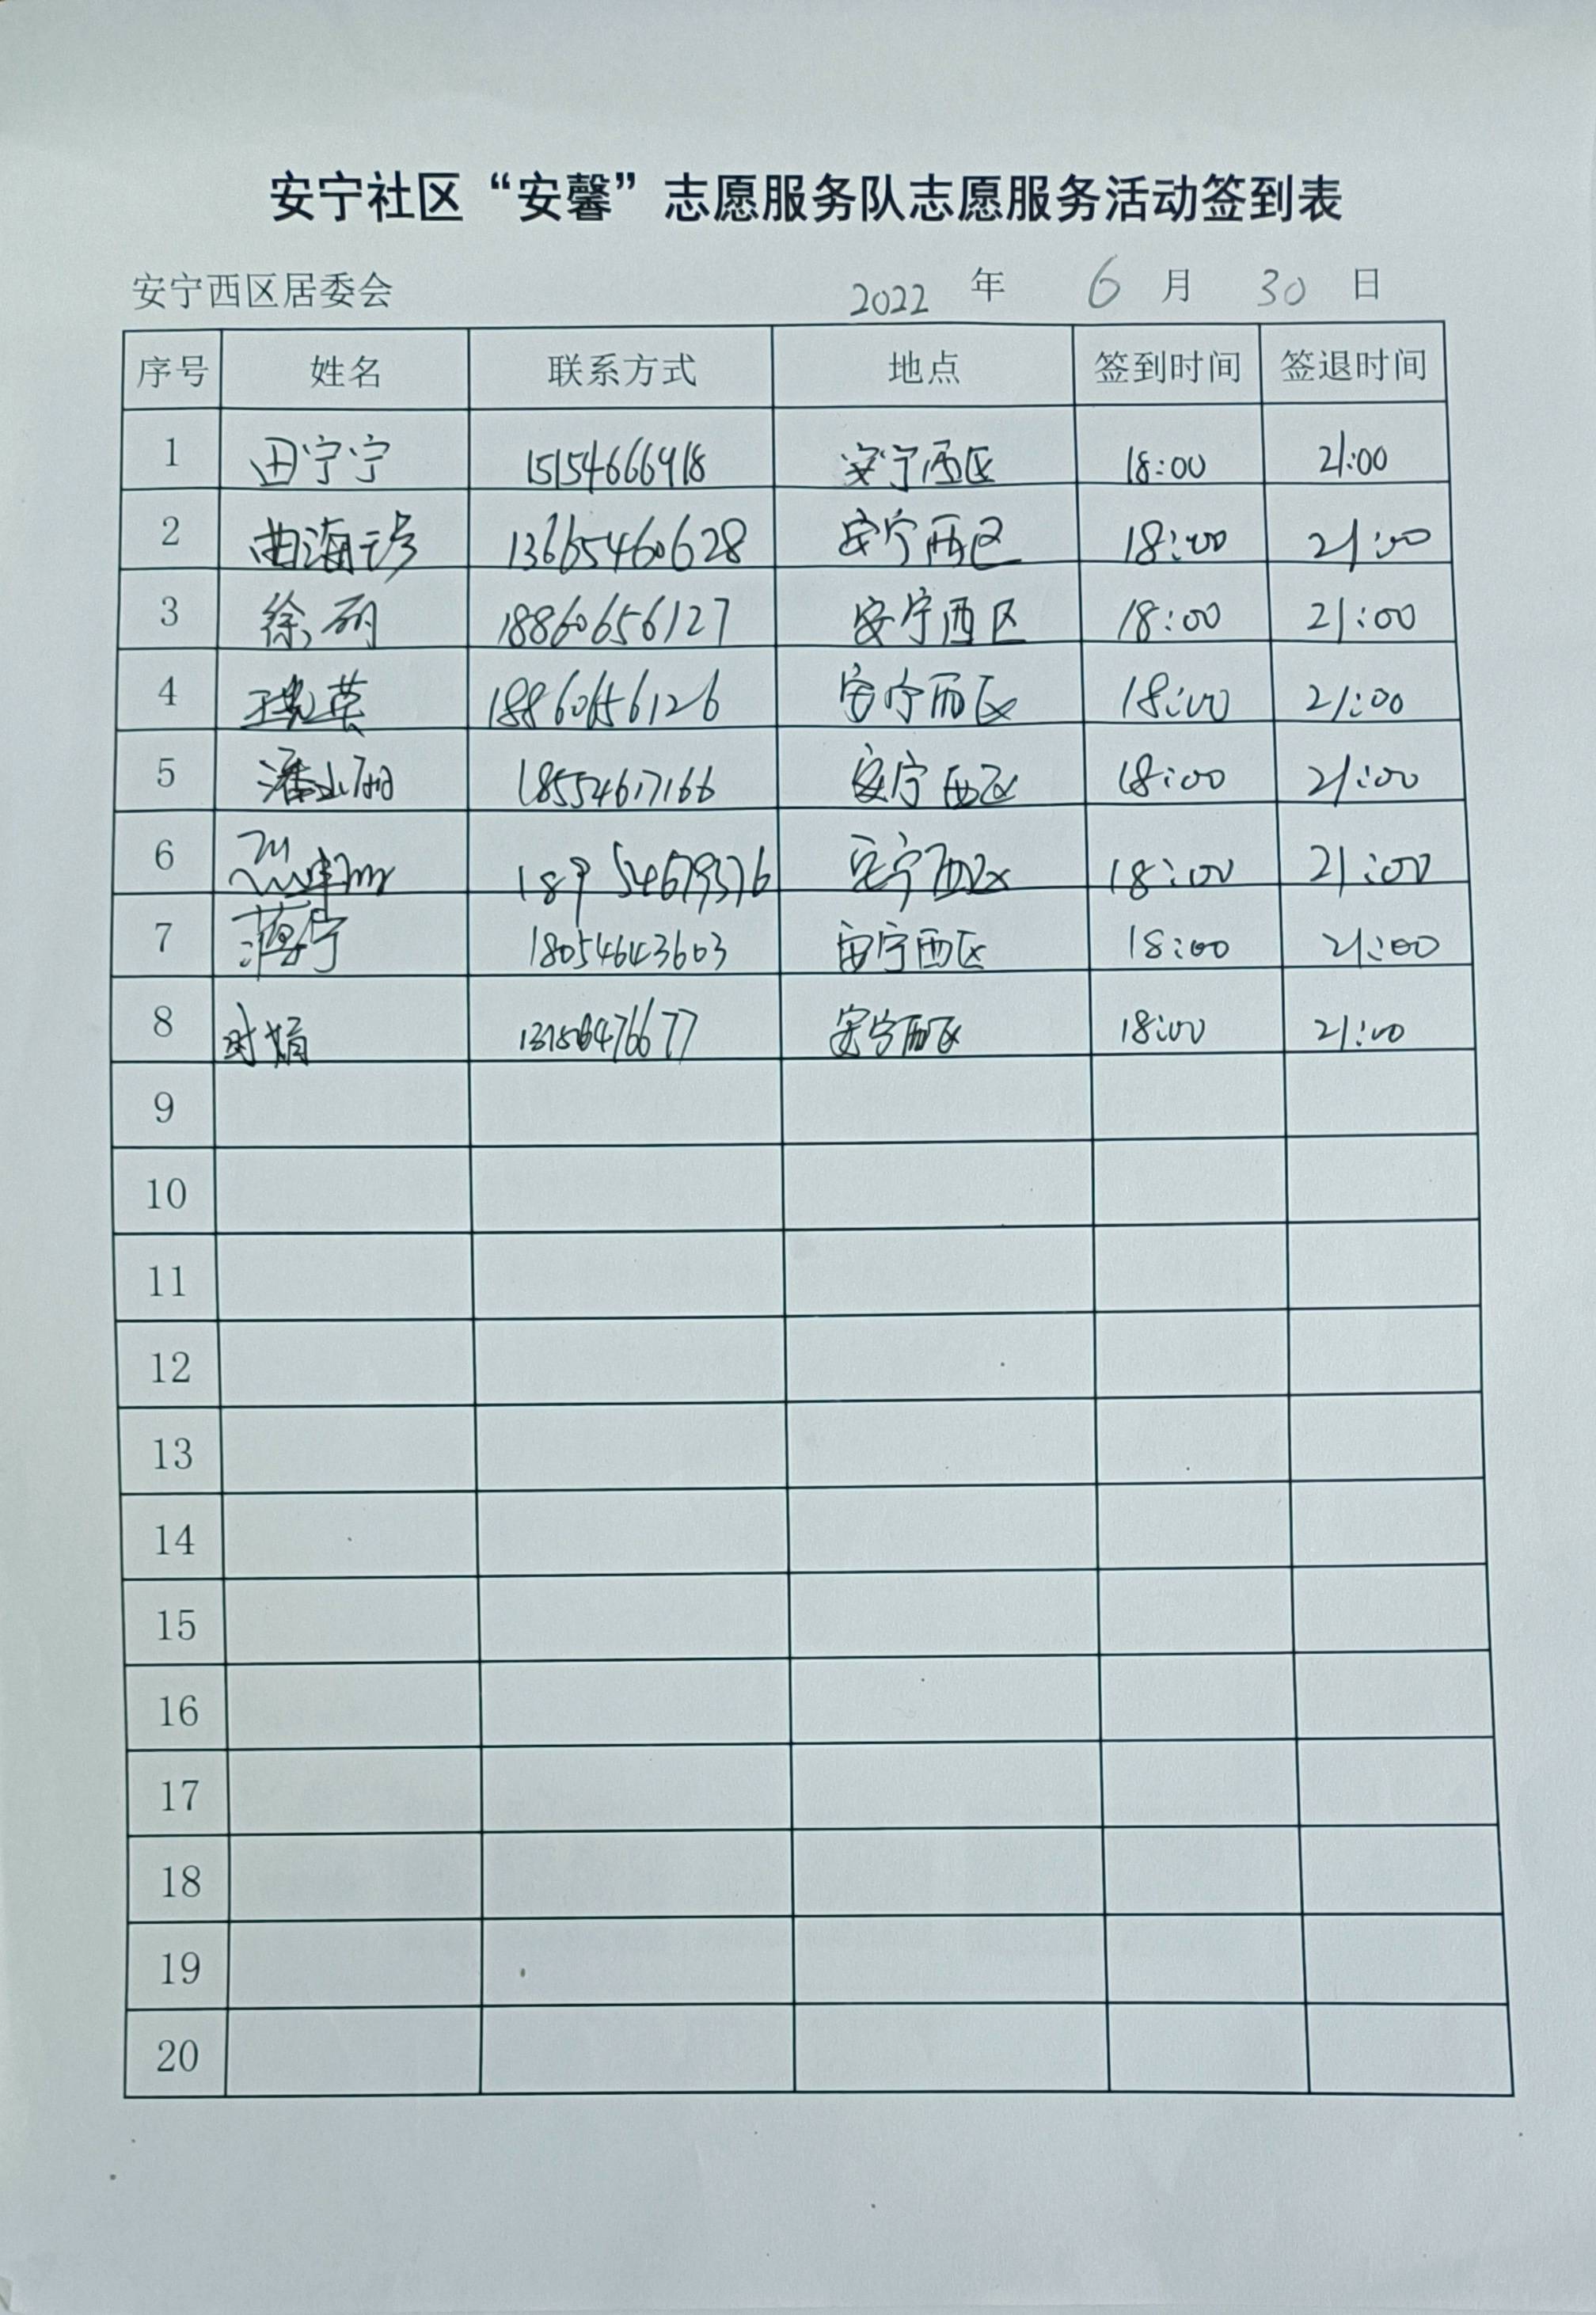 安宁社区“安馨”志愿服务队志愿服务活动签到表
安宁西区居委会 2022 年 6 月 30 日
序号 姓名 联系方式 地点 签到时间 签退时间
1 田宁宁 15154666918 安宁西区 18:00 21:00
2 曲海 13665460628 安宁西区 18:00 21:00
3 徐丽 18860656127 安宁西区 18:00 21:00
4 18860656126 安宁西区 18:00 21:00
5 潘 18554617166 安宁西区 18:00 21:00
6 安宁西区 18:00 21:00
7 薄宁 18054643603 安宁西区 18:00 21:00
8 时娟 安宁西区 18:00 21:00
9
10
11
12
13
14
15
16
17
18
19
20